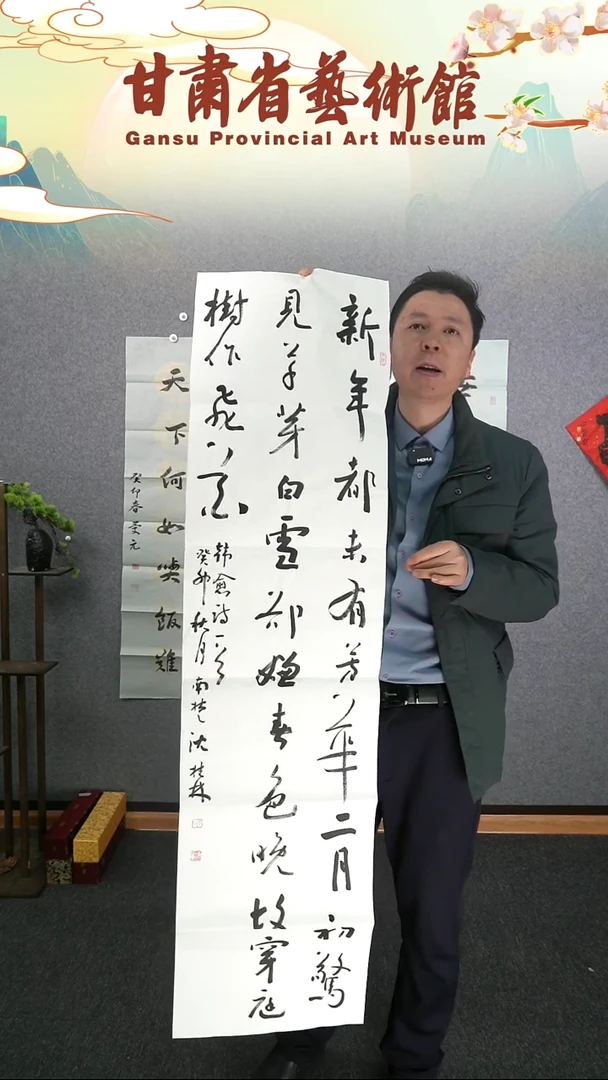 甘肅省藝術館
Gansu Provincial Art Museum
新年都未有芳華二月初驚
見草芽白雪卻嫌春色晚故穿庭
樹作飛花
韓愈詩一首
癸卯秋月南 沈桂林
天下何如喫飯難
癸卯春